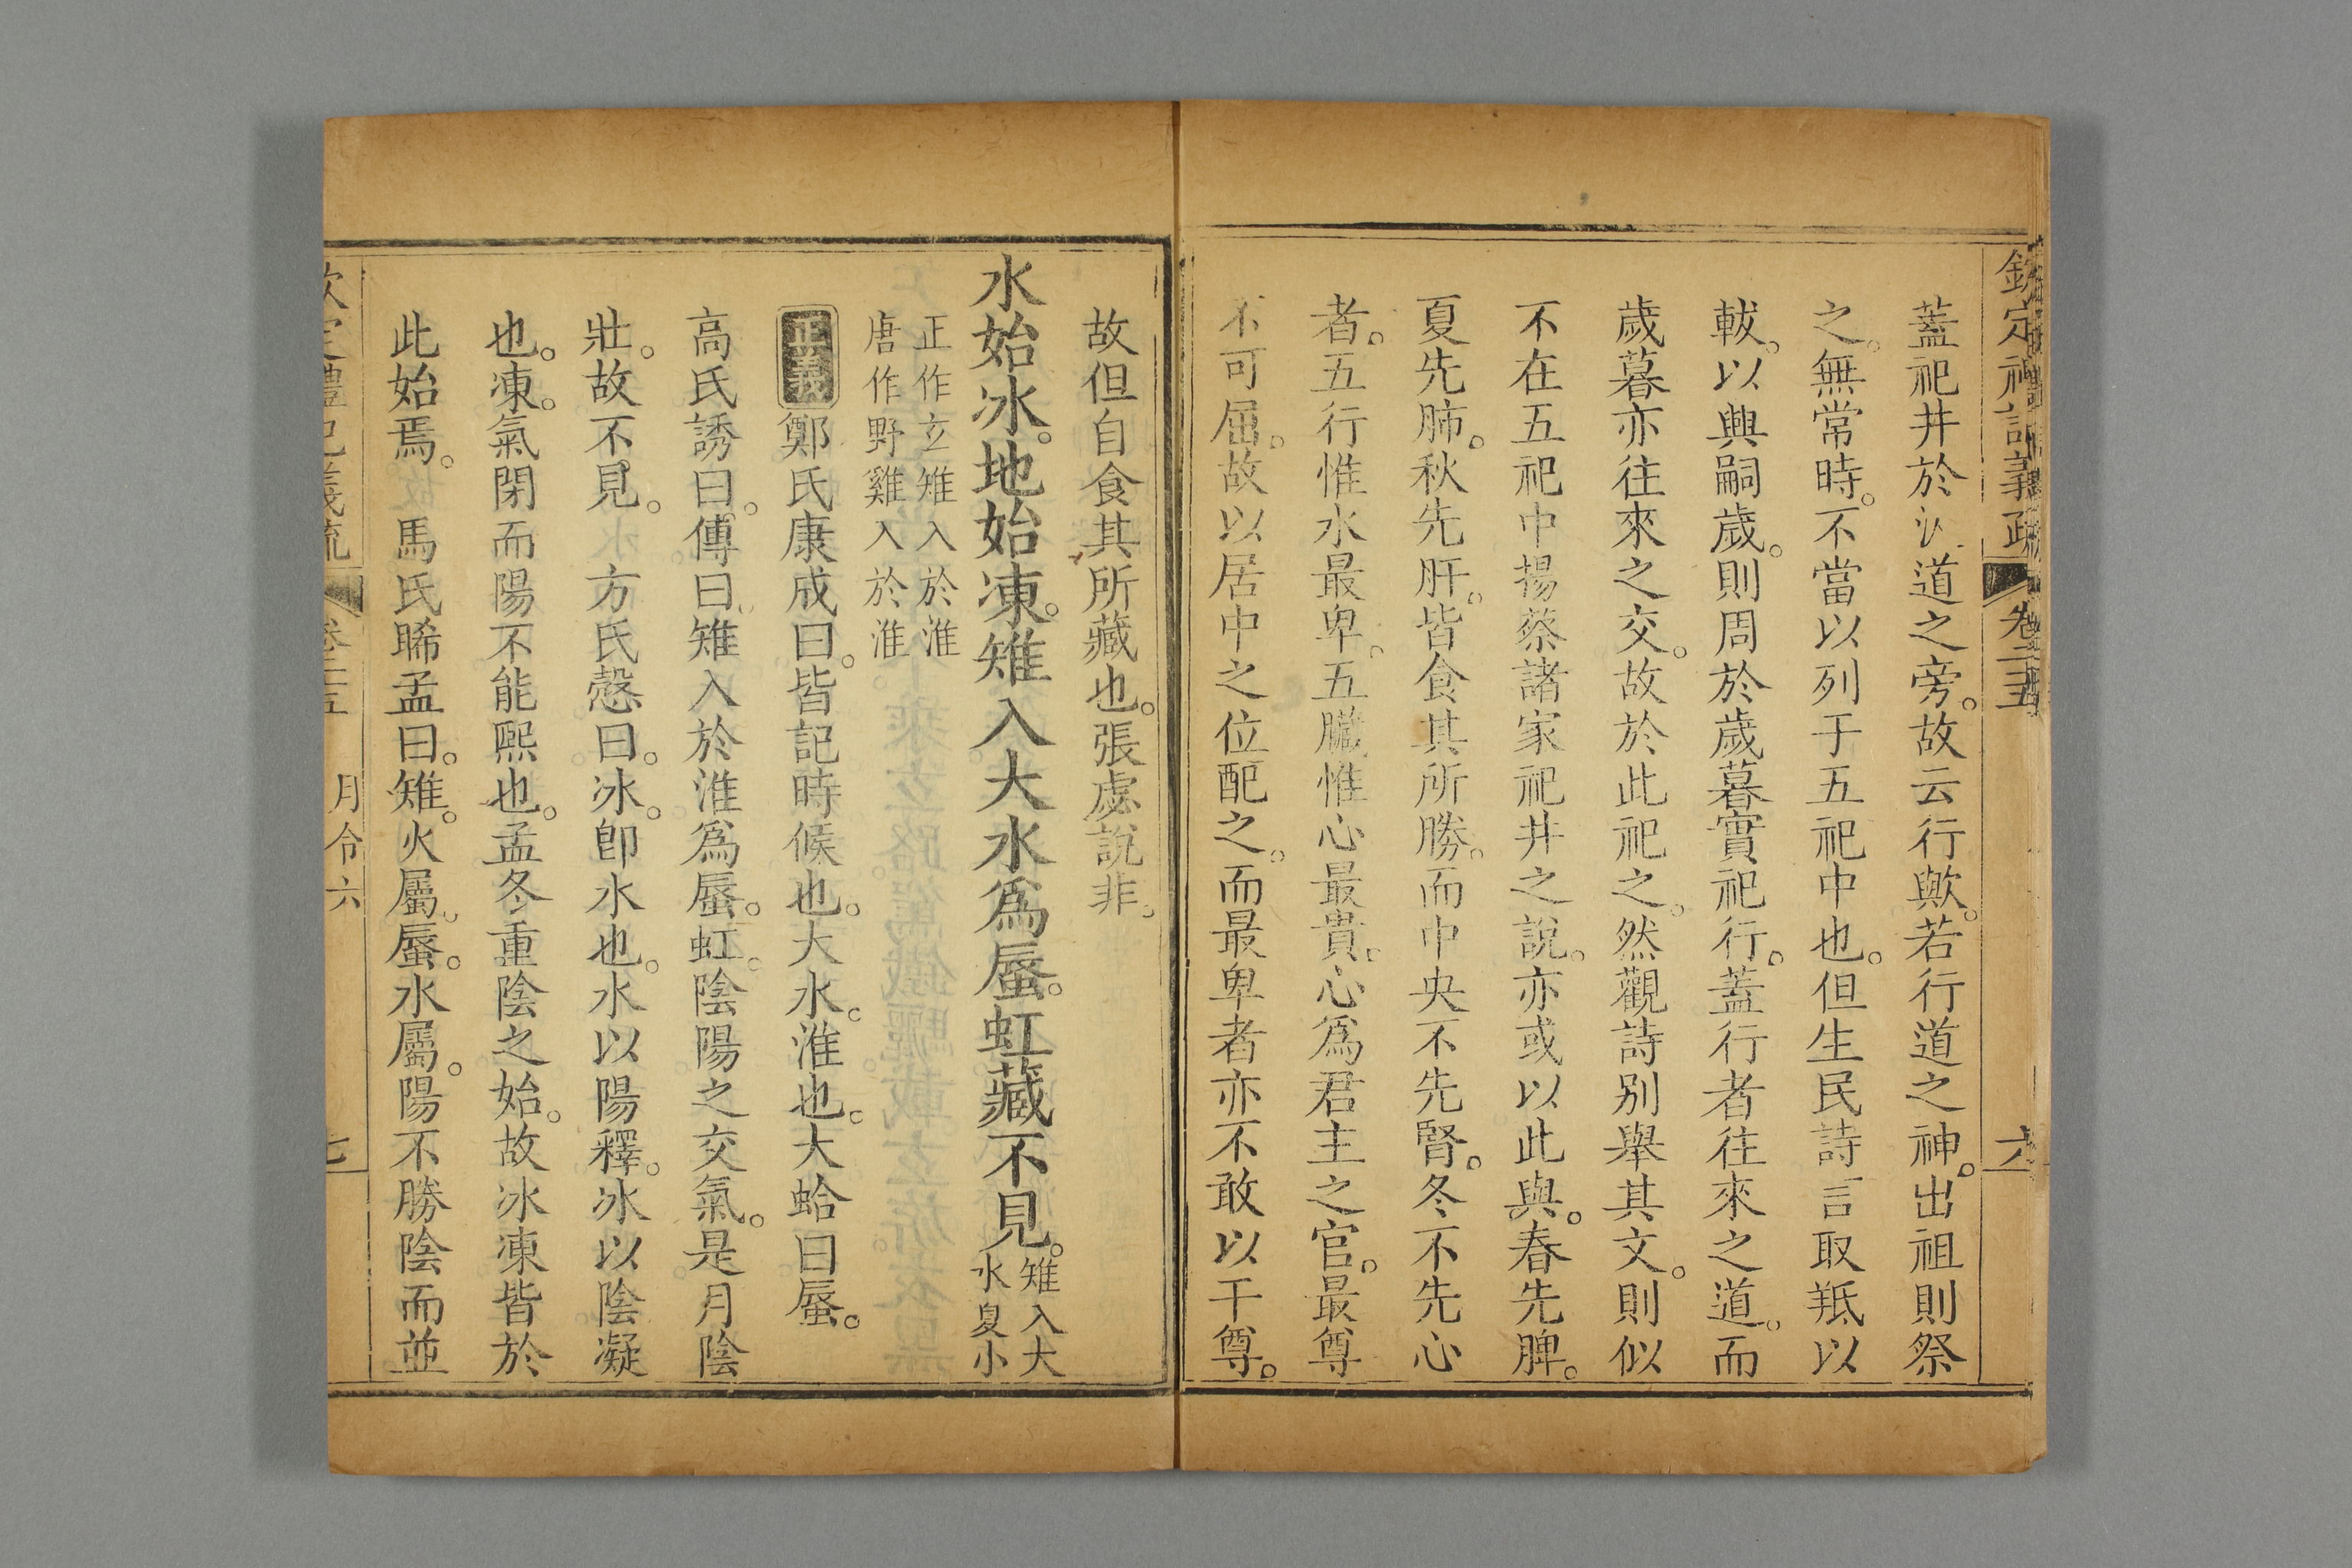 欽定禮記義疏 卷二十五 六
蓋祀井於 道之旁。故云行歟。若行道之神。出祖則祭
之。無常時。不當以列于五祀中也。但生民詩言取羝以
軷。以興嗣歲。則周於歲暮實祀行。蓋行者往來之道。而
歲暮亦往來之交。故於此祀之。然觀詩别舉其文。則似
不在五祀中揚蔡諸家祀井之說。亦或以此與。春先脾。
夏先肺。秋先肝。皆食其所勝。而中央不先腎。冬不先心
者。五行惟水最卑。五臟惟心最貴。心爲君主之官。最尊
不可屈。故以居中之位配之。而最卑者亦不敢以干尊。
故但自食其所藏也。張處說非。
水始冰。地始凍。雉入大水爲蜃。虹藏不見。雉入大
水夏小
正作玄雉入於淮
唐作野雞入於淮。
正義鄭氏康成曰。皆記時候也。大水。淮也。大蛤曰蜃。
高氏誘曰。傳曰。雉入於淮爲蜃。虹。陰陽之交氣。是月陰
壯。故不見。 方氏慤曰。冰。卽水也。水以陽釋。冰以陰凝
也。凍。氣閉而陽不能熈也。孟冬重陰之始。故冰凍皆於
此始焉。 馬氏睎孟曰。雉。火屬。蜃。水屬。陽不勝陰而並
欽定禮記義疏 卷二十五 月令六 七